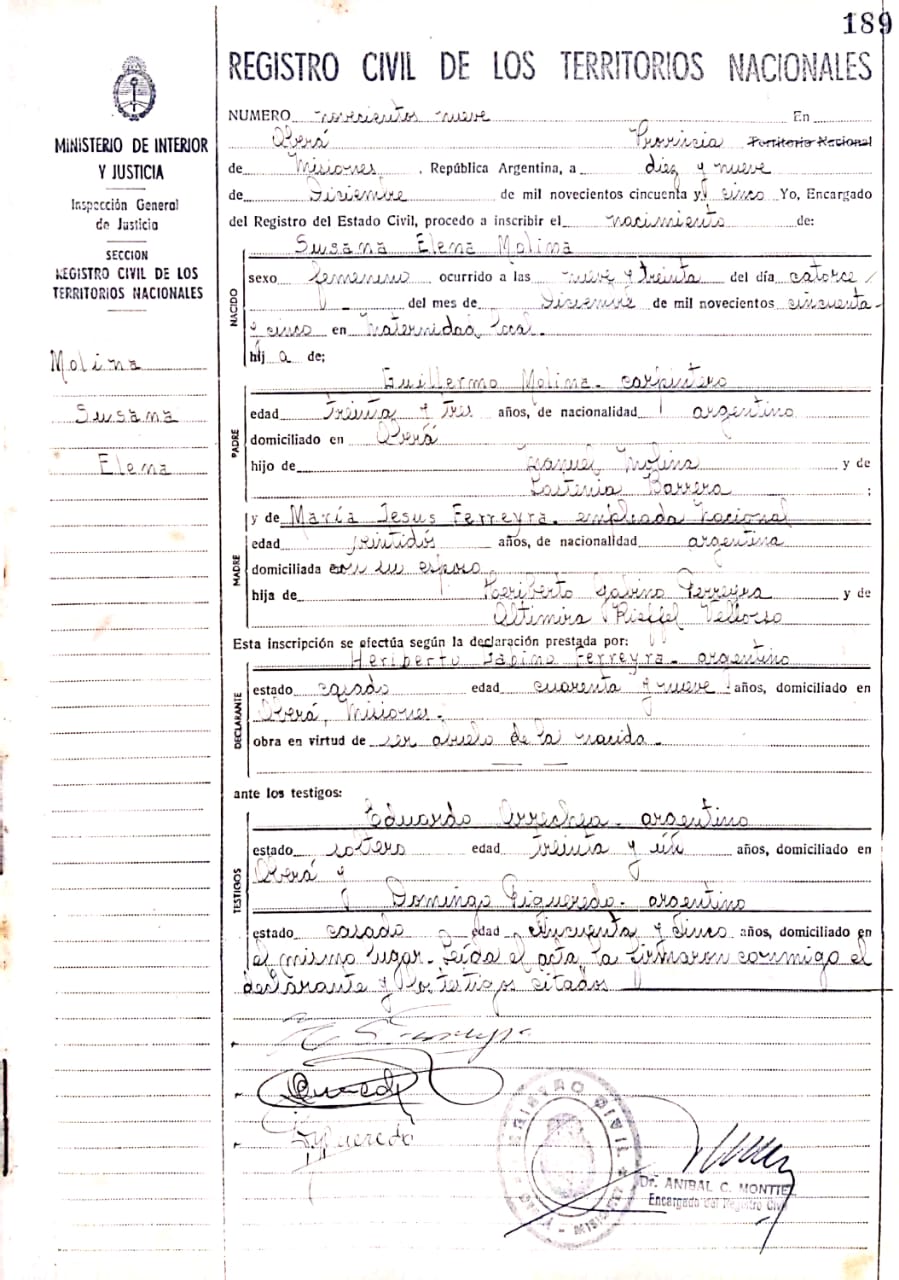 189
REGISTRO CIVIL DE LOS TERRITORIOS NACIONALES
MINISTERIO DE INTERIOR
Y JUSTICIA
Inspección General
de Justicia
SECCION
REGISTRO CIVIL DE LOS
TERRITORIOS NACIONALES
Molina
Susana
Elena
NUMERO novecientos nueve En
Oberá Provincia Territorio Nacional
de Misiones, República Argentina, a diez y nueve
de Diciembre de mil novecientos cincuenta y cinco Yo, Encargado
del Registro del Estado Civil, procedo a inscribir el nacimiento de:
NACIDO
Susana Elena Molina
sexo femenino ocurrido a las nueve y treinta del día catorce
del mes de Diciembre de mil novecientos cincuenta
y cinco en Maternidad local.
hij a de;
PADRE
Guillermo Molina - carpintero
edad treinta y tres años, de nacionalidad argentino
domiciliado en Oberá
hijo de Manuel Molina y de
Lastenia Barrera ;
MADRE
y de María Jesus Ferreyra - empleada nacional
edad veintidós años, de nacionalidad argentina
domiciliada con su esposo
hija de Heriberto Gabino Ferreyra y de
Altimira
Esta inscripción se efectúa según la declaración prestada por:
DECLARANTE
Heriberto Gabino Ferreyra - argentino
estado casado edad cuarenta y nueve años, domiciliado en
Oberá, Misiones.
obra en virtud de ser abuelo de la nacida -
ante los testigos:
TESTIGOS
Eduardo Arrechea - argentino
estado soltero edad treinta y un años, domiciliado en
Oberá y
Domingo Figueredo - argentino
estado casado edad cincuenta y cinco años, domiciliado en
el mismo lugar - Leída el acta, la firmaron conmigo el
declarante y los testigos citados
Figueredo
REGISTRO CIVIL
OBERA - MISIONES
Dr. ANIBAL C. MONTIEL
Encargado del Registro Civil